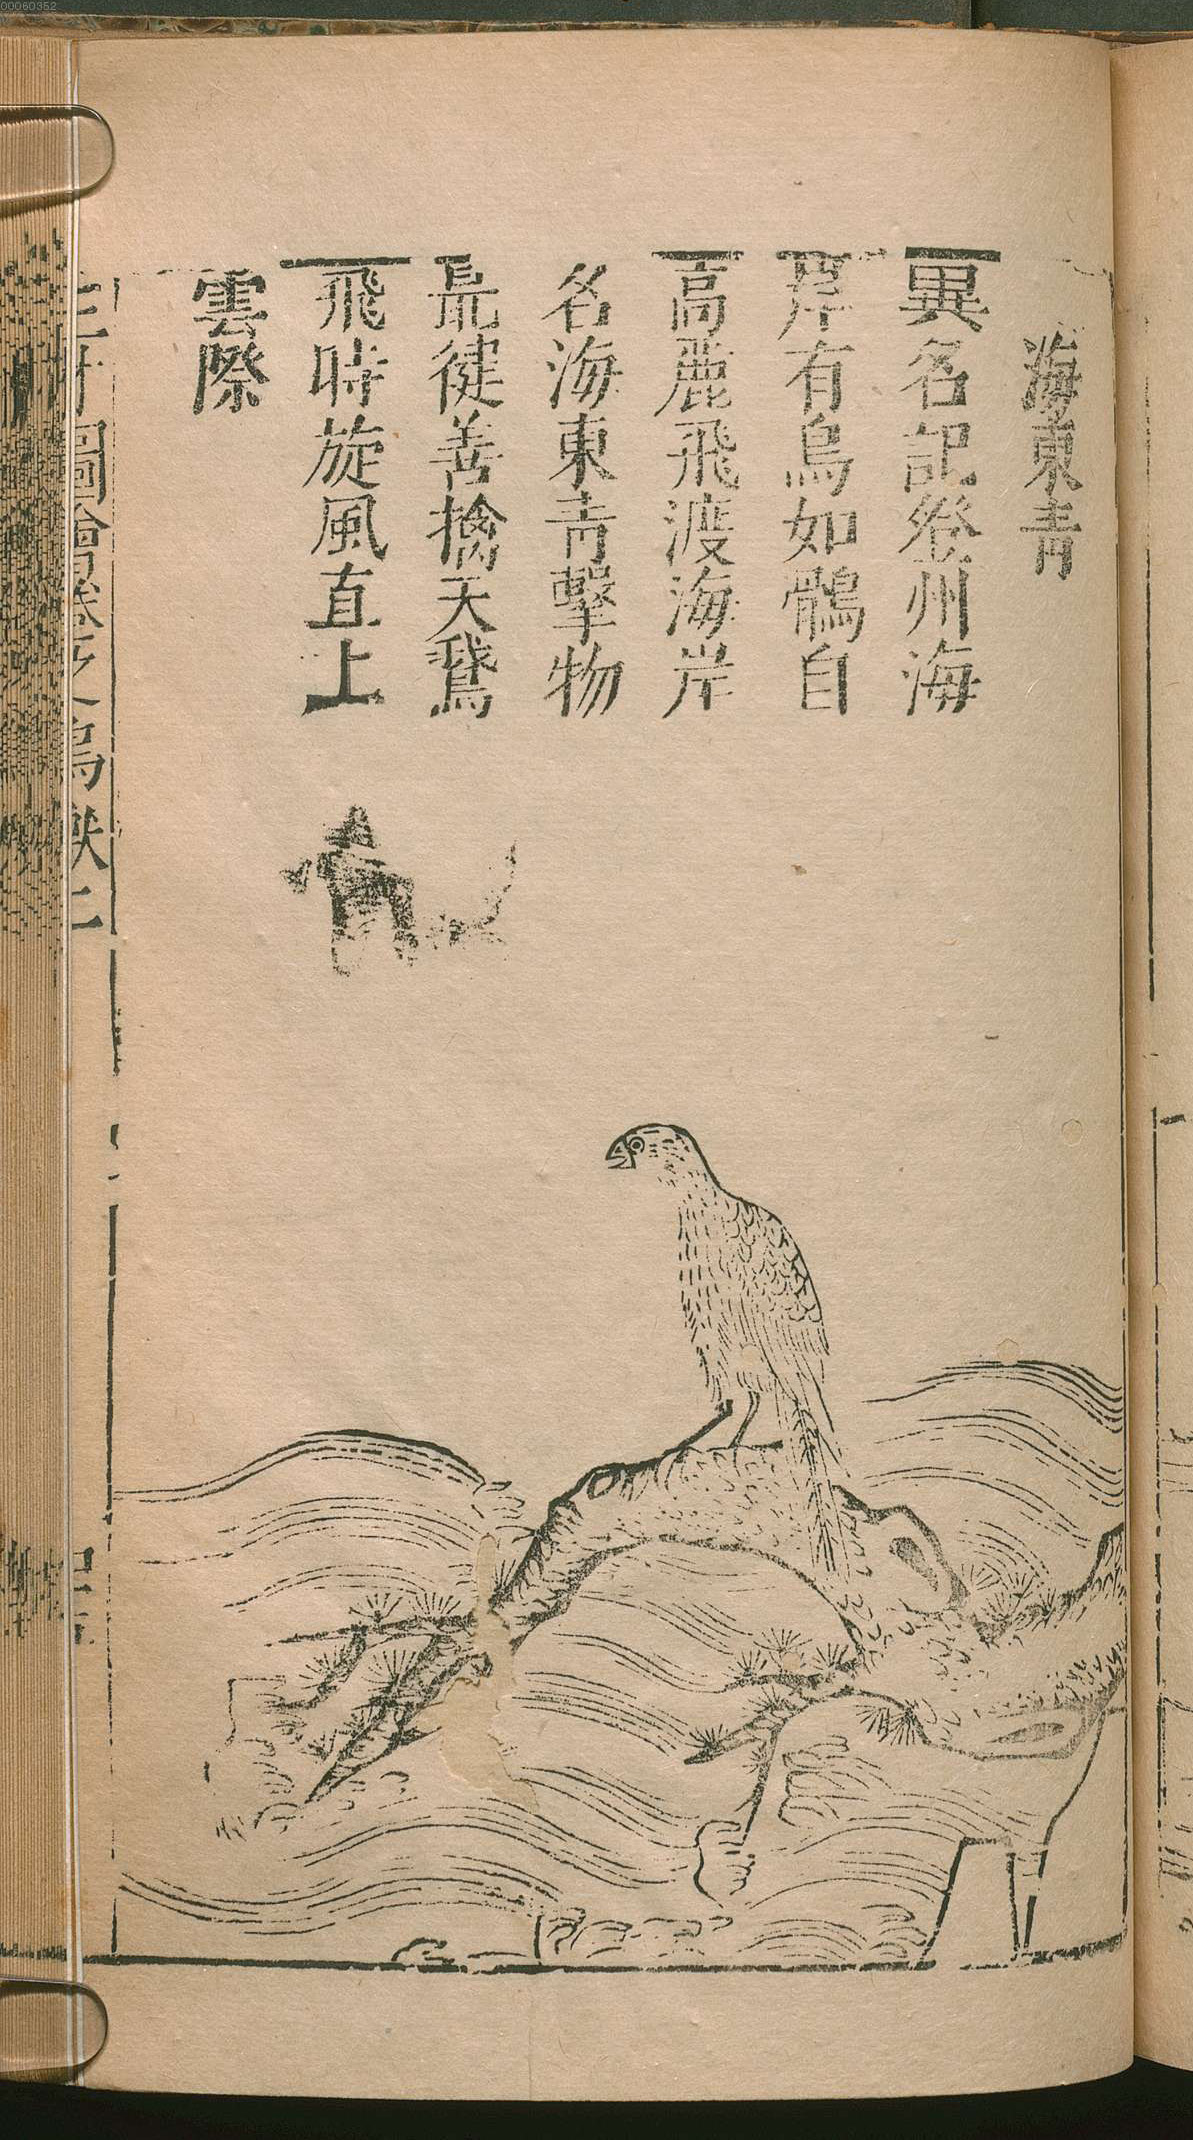 海東青
異名記登州海
岸有鳥如鶻自
高麗飛渡海岸
名海東青擊物
最徤善擒天鵞
飛時旋風直上
雲際
三才圖會卷之鳥獸二
00060352